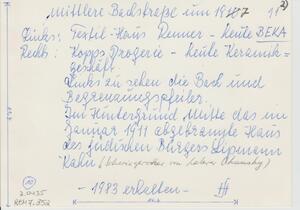 Mittlere Bachstraße um 1907 11 2)
Links: Textil-Haus Renner - heute BEKA
Rechts: Kopps Drogerie - heute Keramik-
geschäft
Links zu sehen die Bach und
Begrenzungspfeiler.
Im Hintergrund Mitte das im
Januar 1911 abgebrannte Haus
des jüdischen Bürgers Lipmann
Kahn (
von
- 1983 erhalten -
10
2.0435
REM 7.352